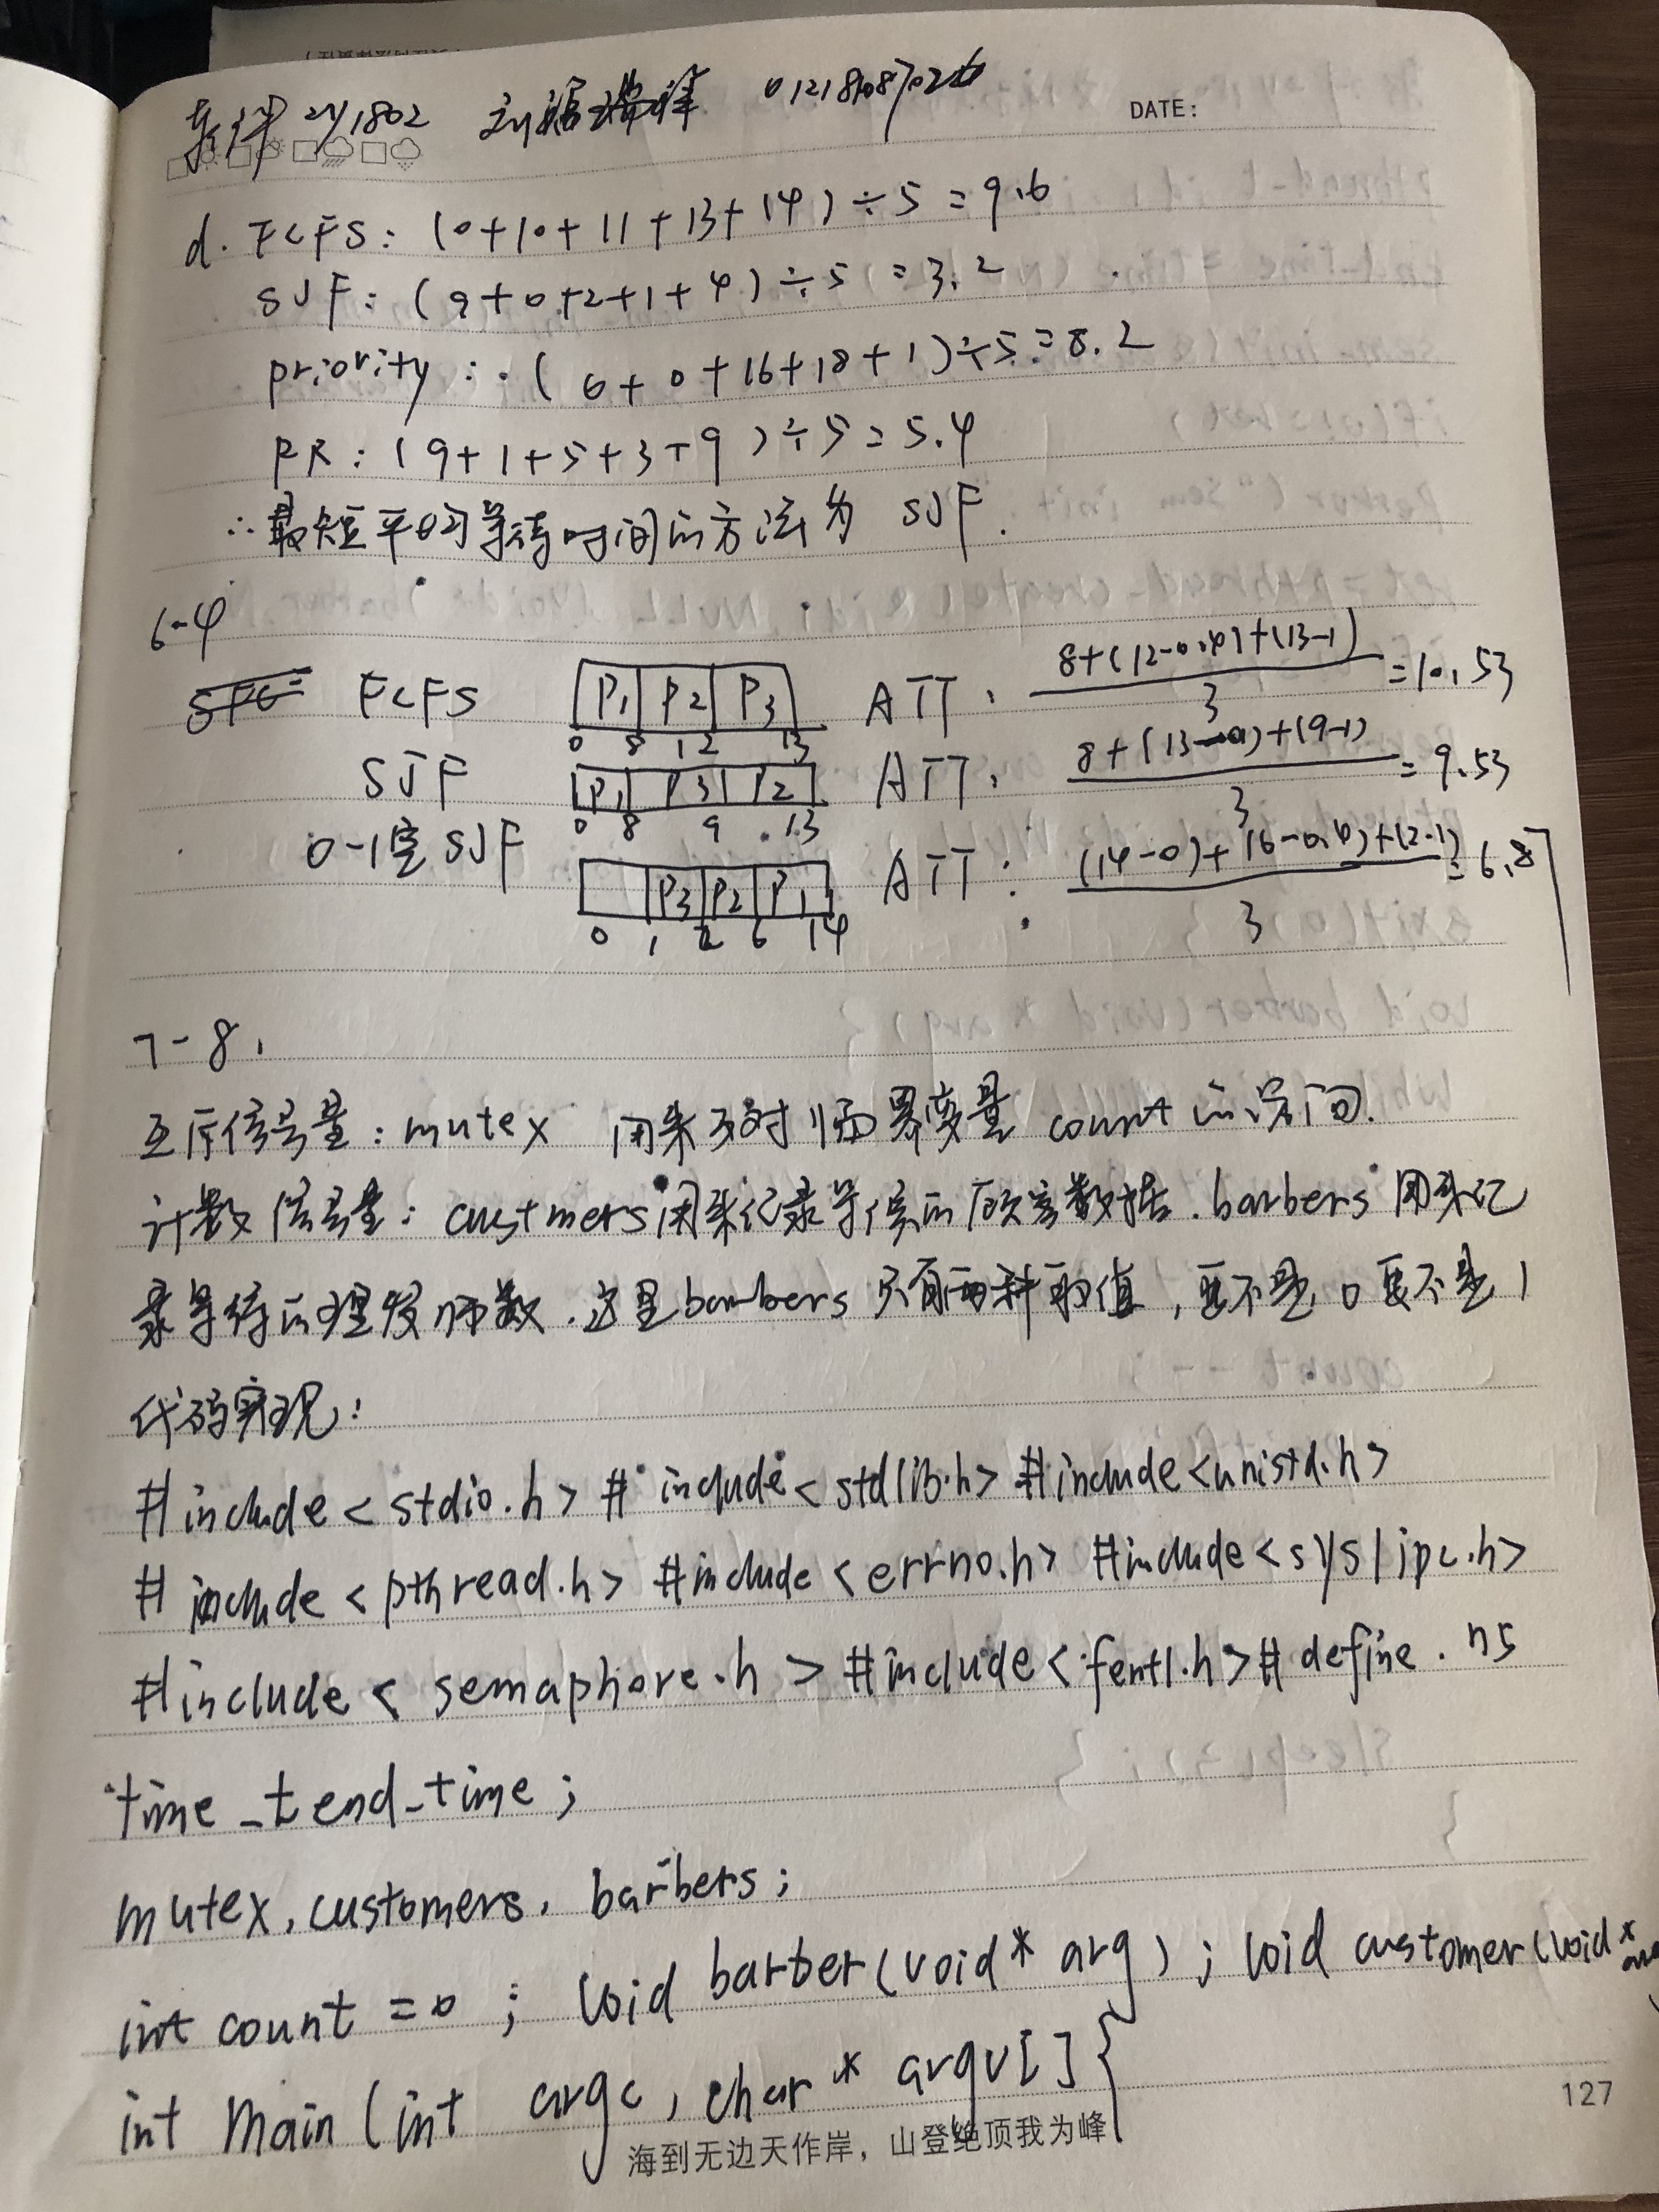 软件zy1802 刘 0121808702
DATE:
d. FCFS: (0+10+11+13+14)÷5=9.6
SJF: (9+0+2+1+4)÷5=3.2
priority: (6+0+16+18+1)÷5=8.2
RR: (9+1+5+3+9)÷5=5.4
∴最短平均等待时间的方法为 SJF.
6-4
FCFS P1 P2 P3 0 8 12 13 ATT: (8+(12-0.4)+(13-1))/3=10.53
SJF P1 P3 P2 0 8 9 13 ATT: (8+(13-0.4)+(9-1))/3=9.53
0-1空SJF P3 P2 P1 0 1 2 6 14 ATT: ((14-0)+(6-0.4)+(2-1))/3=6.87
7-8.
互斥信号量: mutex 用来对临界变量 count的访问.
计数信号量: custmers用来记录等候的顾客数据. barbers 用来记
录等待的理发师数. 这里barbers 只有两种取值, 要不是0要不是1
代码实现:
#include<stdio.h> #include<stdlib.h> #include<unistd.h>
#include<pthread.h> #include<errno.h> #include<sys/ipc.h>
#include<semaphore.h> #include<fcntl.h> #define n5
time_t end_time;
mutex, customers, barbers;
int count=0; void barber(void* arg); void customer(void* arg
int main(int argc, char* argv[]{
127
海到无边天作岸，山登绝顶我为峰